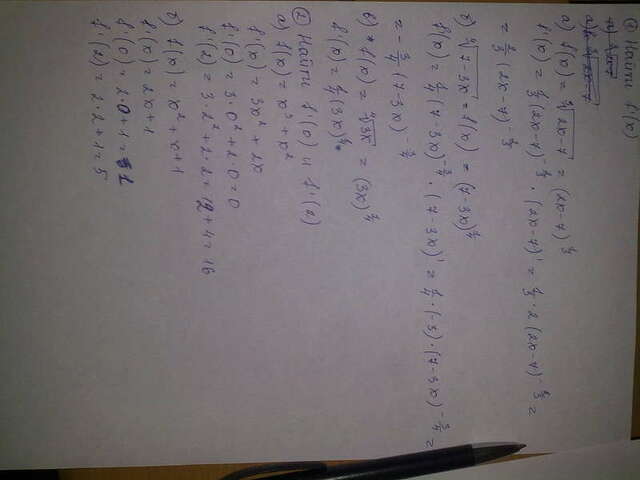 ① Найти f'(x)
а) f(x) = ∛(2x-7) = (2x-7)^{1/3}
f'(x) = 1/3 (2x-7)^{-2/3} · (2x-7)' = 1/3 · 2 (2x-7)^{-2/3} =
= 2/3 (2x-7)^{-2/3}
б) ∜(7-3x) = f(x) = (7-3x)^{1/4}
f'(x) = 1/4 (7-3x)^{-3/4} · (7-3x)' = 1/4 · (-3) · (7-3x)^{-3/4} =
= - 3/4 (7-3x)^{-3/4}
в) f(x) = ∜(3x) = (3x)^{1/4}
f'(x) = 1/4 (3x)
② Найти f'(0) и f'(2)
а) f(x) = x³ + x²
f'(x) = 3x + 2x
f'(0) = 3·0² + 2·0 = 0
f'(2) = 3·2² + 2·2 = 12 + 4 = 16
б) f(x) = x² + x + 1
f'(x) = 2x + 1
f'(0) = 2·0 + 1 = 1
f'(2) = 2·2 + 1 = 5